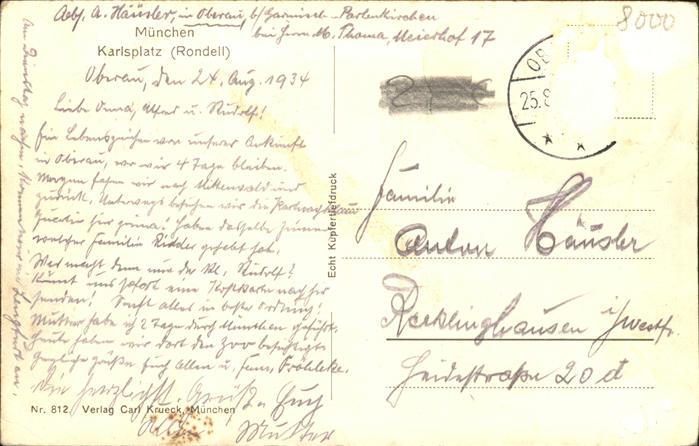 Abs. A. Häusler, in Oberau, b/ Garmisch-Partenkirchen
bei Herrn M. Thoma, Meierhof 17
8000
München
Karlsplatz (Rondell)
Oberau, den 24. Aug. 1934
Liebe Alfred u. Rudolf!
Ein Lebenszeichen von unserer Ankunft
in Oberau, wo wir 4 Tage bleiben.
Morgen fahren wir nach Mittenwald und
zurück. Unterwegs wir die
Quartier hier prima! Haben dasselbe Zimmer
welches Familie gehabt hat.
Was macht denn nur der kl. Rudolf?
uns sofort eine Postkarte nach hier
senden! Sonst alles in bester Ordnung!
Mutter habe ich 2 Tage durch München geführt.
Heute haben wir dort den Zoo besichtigt.
Grüße Euch Allen u. Fam. Fröhleke.
Die herzlichst. Grüße Euch
Mutter
Nr. 812. Verlag Carl Krueck, München
Echt Kupfertiefdruck
OB
25.8
Familie
Anton Häusler
Recklinghausen i/Westf.
Heidestraße 20 d